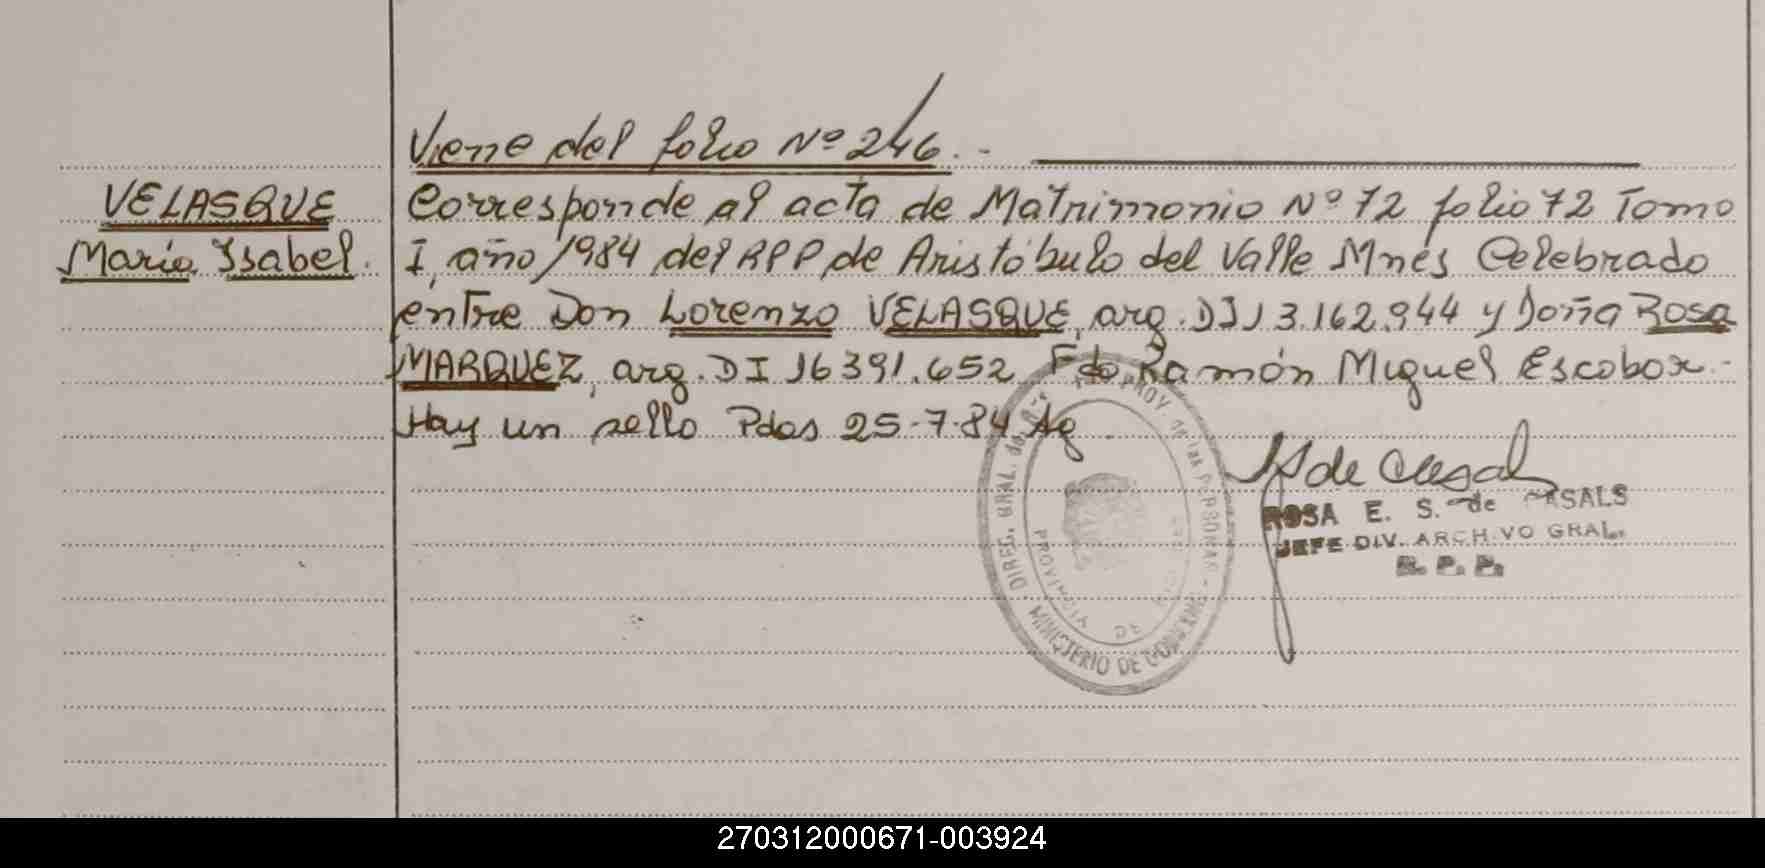 Viene del folio Nº 246.-
VELASQUE
María Isabel.
Corresponde al acta de Matrimonio Nº 72 folio 72 Tomo
I, año 1984 del RPP de Aristóbulo del Valle Mnes Celebrado
entre Don Lorenzo VELASQUE, arg. DI 13.162.944 y Doña Rosa
MARQUEZ, arg. DI 16391.652 Fdo Ramón Miguel Escobar.-
Hay un sello Pdas 25-7-84 Ag
ROSA E. S. de CASALS
JEFE DIV. ARCHIVO GRAL.
R. P. P.
DIREC. GRAL. del PROV. de las PERSONAS - MINISTERIO DE GOBIERNO
PROVINCIA DE
270312000671-003924